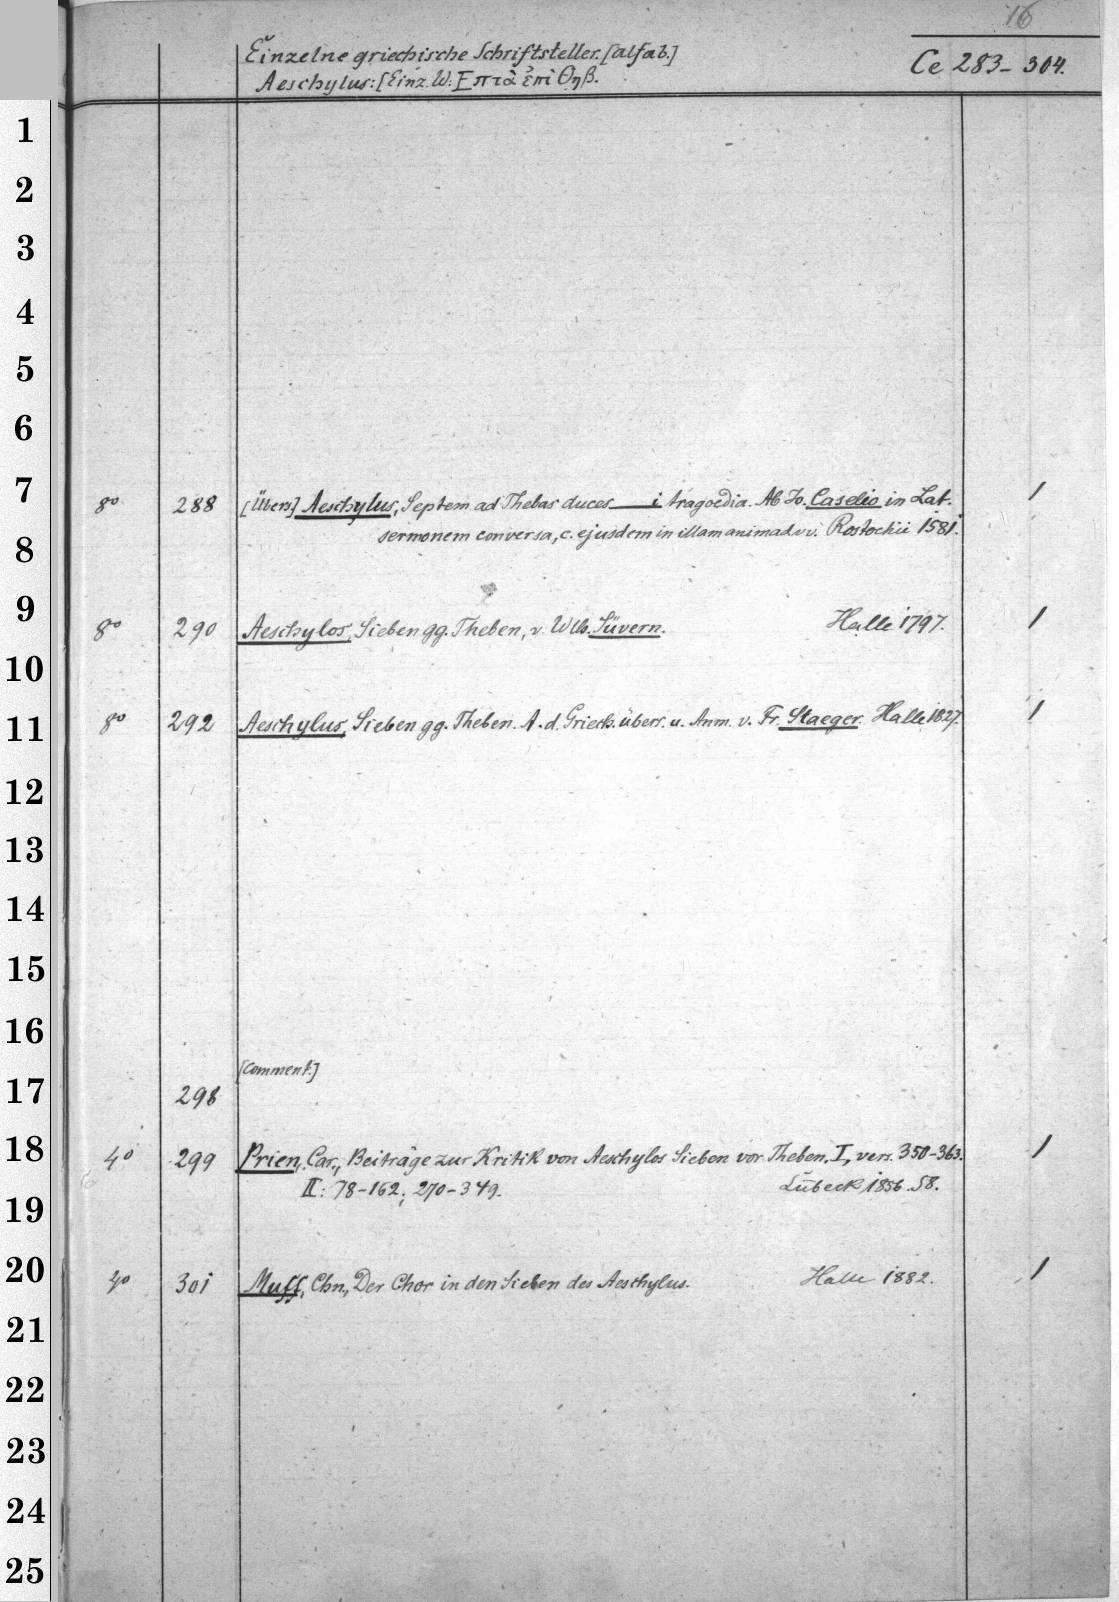 16
Einzelne griechische Schriftsteller. [alfab.]
Ce 283-304.
Aeschylus: [Einz. W: Ἑπτὰ ἐπὶ Θηβ.
1
2
3
4
5
6
7
8° 288 [Übers.] Aeschylus, Septem ad Thebas duces ___ i tragoedia. Ab Jo. Caselio in Lat. 1
8
sermonem conversa, c. ejusdem in illam animadvv. Rostochii 1581.
9
8° 290 Aeschylos, Sieben gg. Theben, v. Wlh. Süvern. Halle 1797. 1
10
11
8° 292 Aeschylus, Sieben gg. Theben. A. d. Griech. übers. u. Anm. v. Fr. Staeger. Halle 1827. 1
12
13
14
15
16
[Comment.]
17
298
18
4° 299 Prien, Car., Beiträge zur Kritik von Aeschylos Sieben vor Theben. I, vers. 350-363. 1
19
II: 78-162; 270-349. Lübeck 1856. 58.
20
4° 301 Muff, Chn., Der Chor in den Sieben des Aeschylus. Halle 1882. 1
21
22
23
24
25